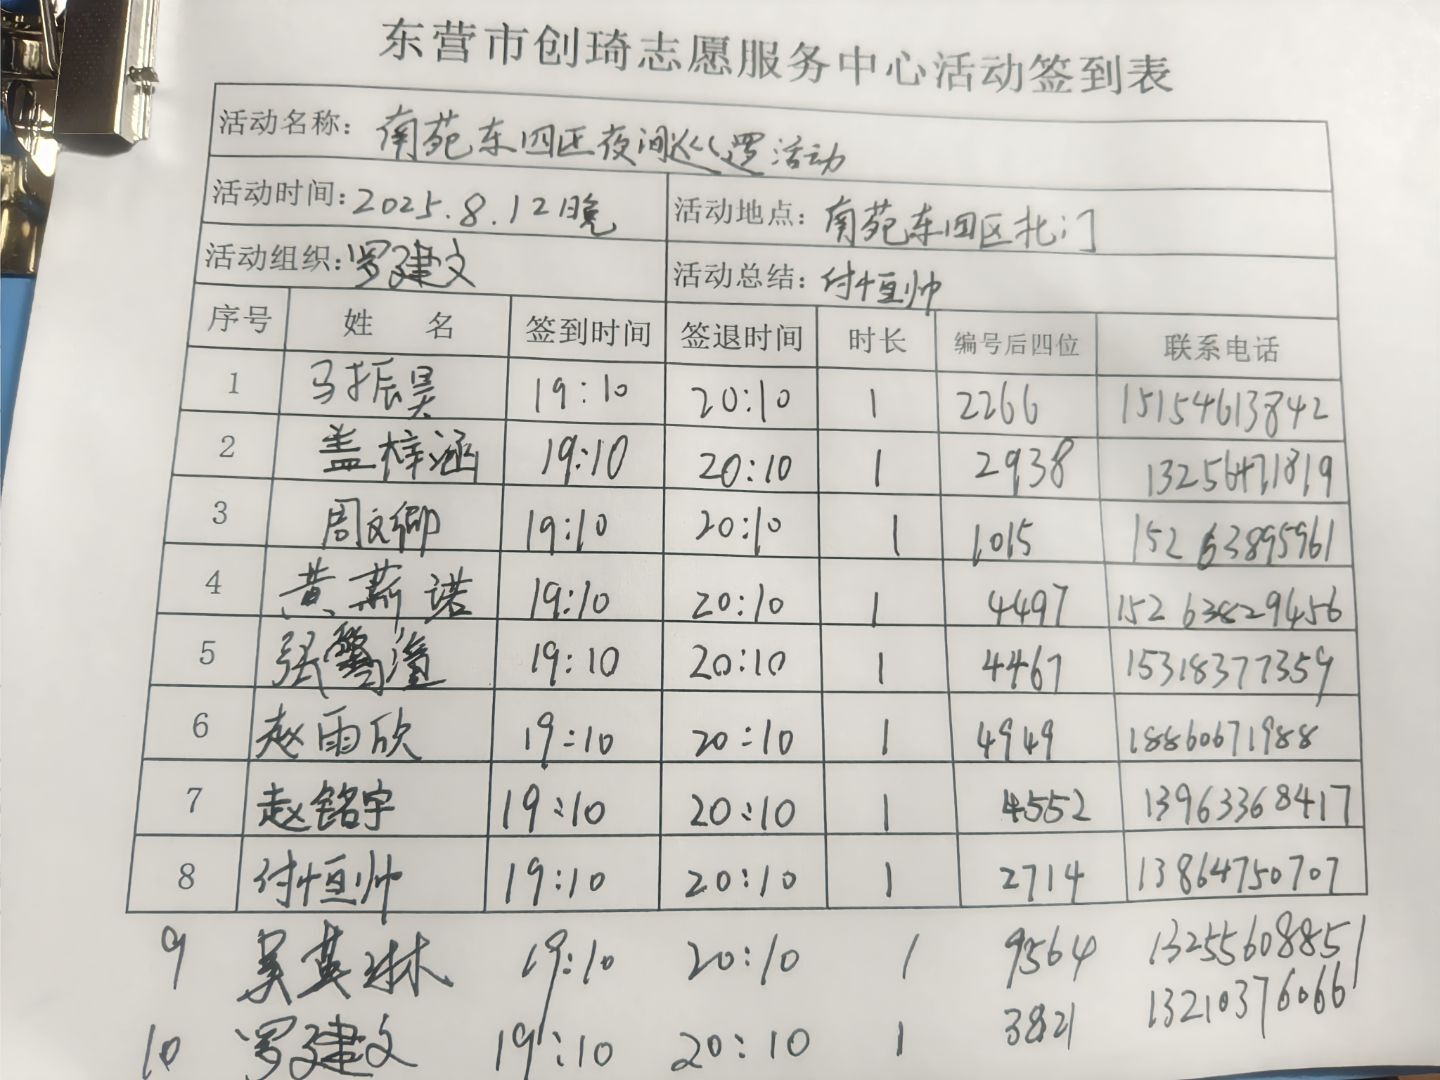 东营市创琦志愿服务中心活动签到表
活动名称: 南苑东四区夜间巡逻活动
活动时间: 2025.8.12晚 活动地点: 南苑东四区北门
活动组织: 罗建文 活动总结: 付恒帅
序号 姓 名 签到时间 签退时间 时长 编号后四位 联系电话
1 马振昊 19:10 20:10 1 2266 15154613842
2 盖梓涵 19:10 20:10 1 2938 13256471819
3 周文卿 19:10 20:10 1 1015 15263895961
4 黄萧诺 19:10 20:10 1 4497 15263829456
5 张 19:10 20:10 1 4467 15318377359
6 赵雨欣 19:10 20:10 1 4949 18860671988
7 赵铭宇 19:10 20:10 1 4552 13963368417
8 付恒帅 19:10 20:10 1 2714 13864750707
9 吴英琳 19:10 20:10 1 9564 13255608851
10 罗建文 19:10 20:10 1 3821 13210376066